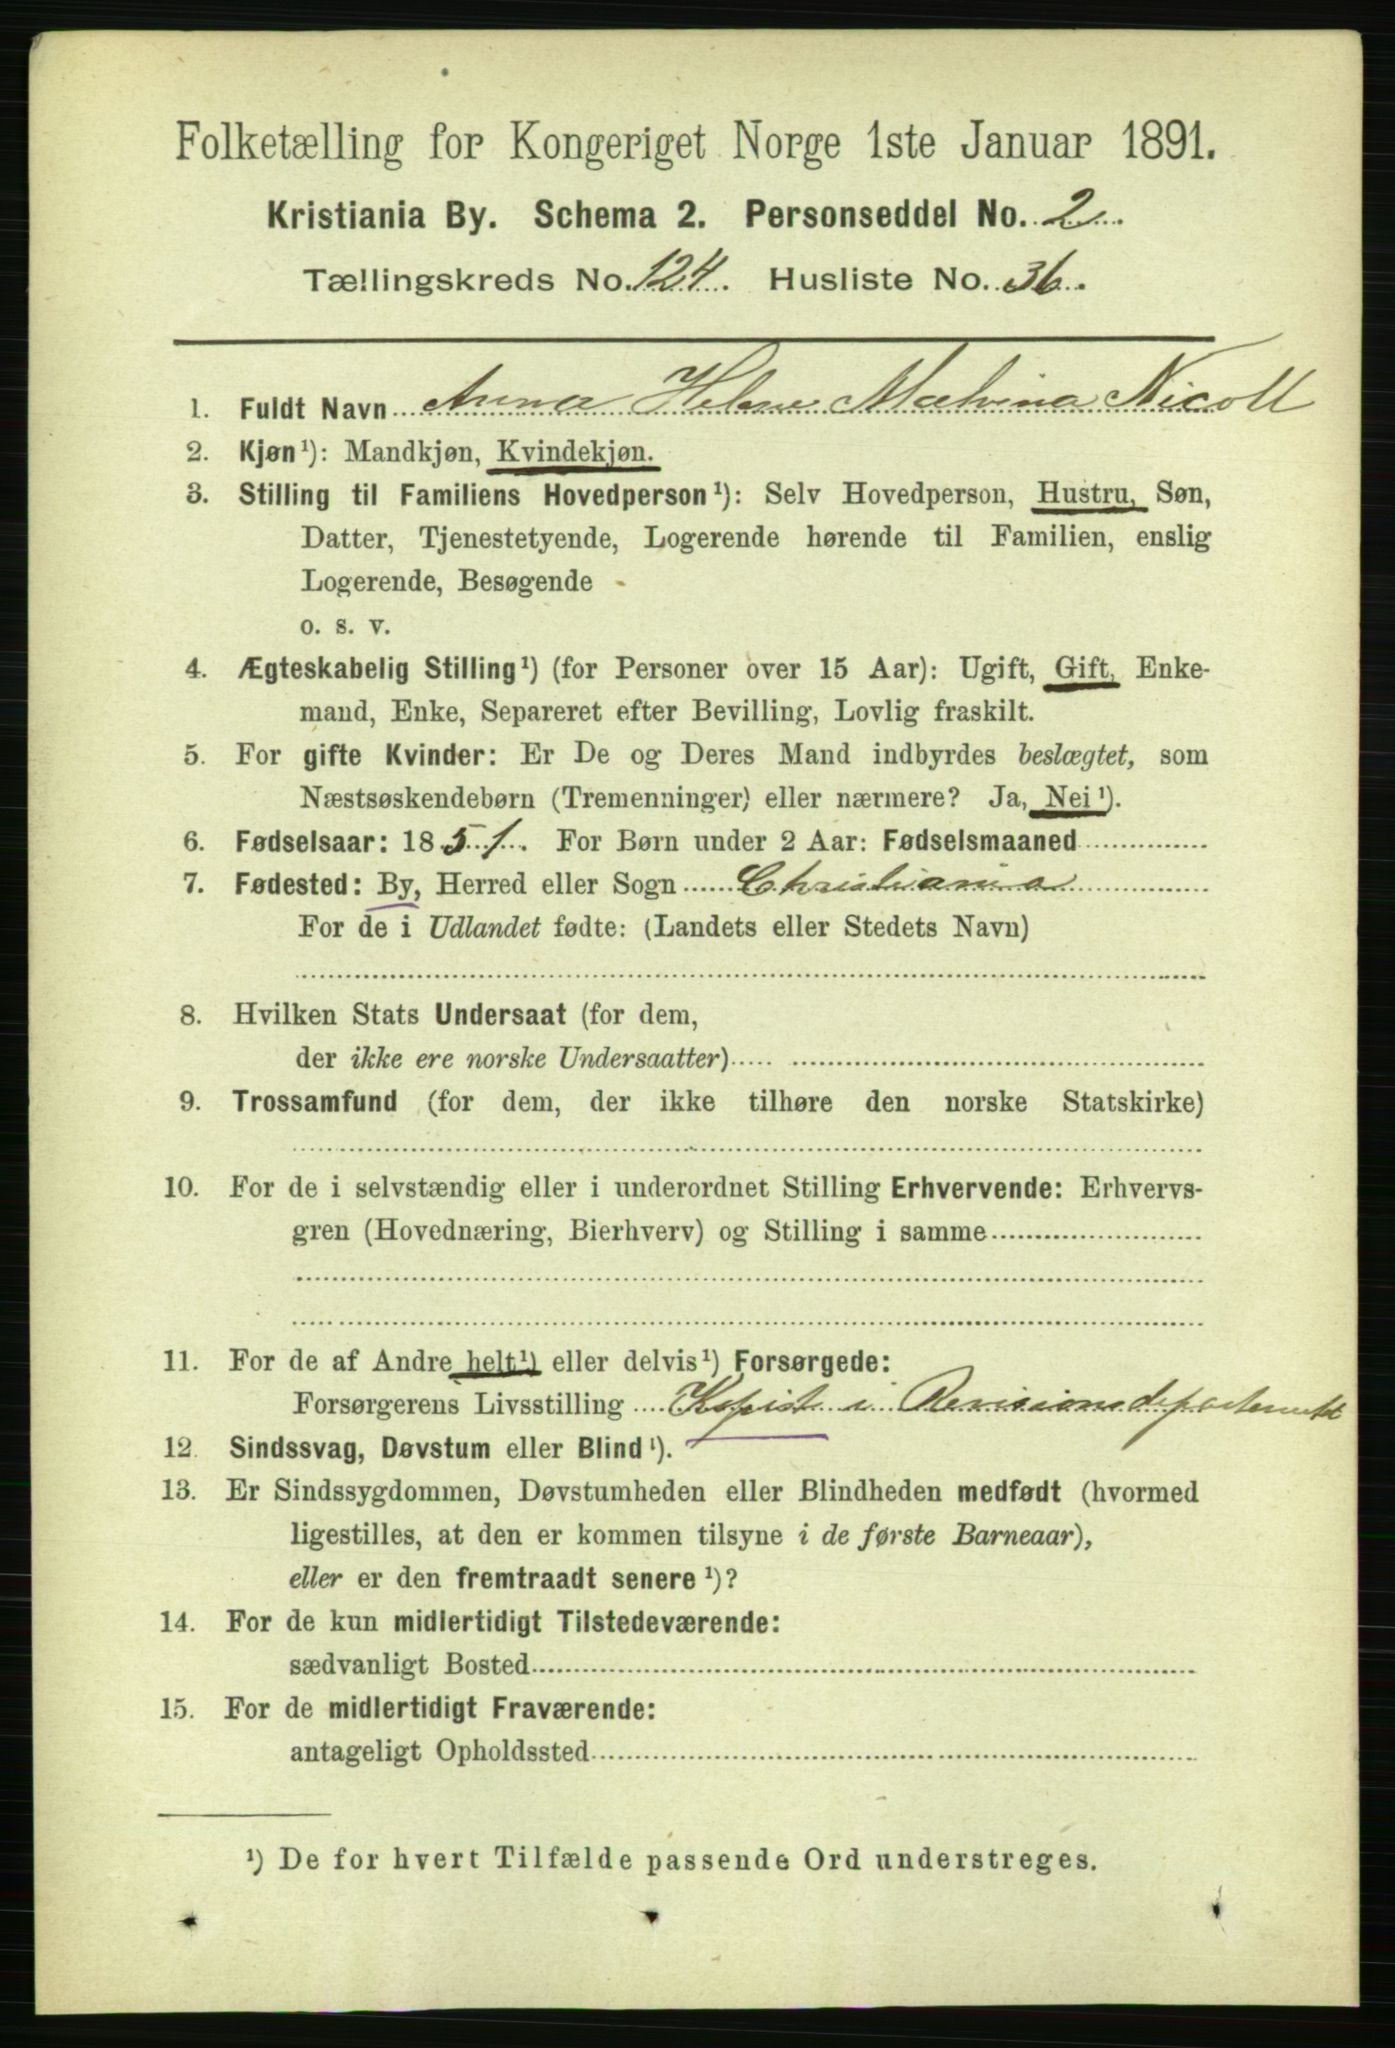 Folketælling for Kongeriget Norge 1ste Januar 1891.
Kristiania By. Schema 2. Personseddel No. 2
Tællingskreds No. 124. Husliste No. 36.
1. Fuldt Navn Anna Helene Malvina Nicoll
2. Kjøn¹): Mandkjøn, Kvindekjøn.
3. Stilling til Familiens Hovedperson¹): Selv Hovedperson, Hustru, Søn,
Datter, Tjenestetyende, Logerende hørende til Familien, enslig
Logerende, Besøgende
o. s. v.
4. Ægteskabelig Stilling¹) (for Personer over 15 Aar): Ugift, Gift, Enke-
mand, Enke, Separeret efter Bevilling, Lovlig fraskilt.
5. For gifte Kvinder: Er De og Deres Mand indbyrdes beslægtet, som
Næstsøskendebørn (Tremenninger) eller nærmere? Ja, Nei¹).
6. Fødselsaar: 1851. For Børn under 2 Aar: Fødselsmaaned
7. Fødested: By, Herred eller Sogn Christiania
For de i Udlandet fødte: (Landets eller Stedets Navn)
8. Hvilken Stats Undersaat (for dem,
der ikke ere norske Undersaatter)
9. Trossamfund (for dem, der ikke tilhøre den norske Statskirke)
10. For de i selvstændig eller i underordnet Stilling Erhvervende: Erhvervs-
gren (Hovednæring, Bierhverv) og Stilling i samme
11. For de af Andre helt¹) eller delvis¹) Forsørgede:
Forsørgerens Livsstilling Kopist i Revisionsdepartementet
12. Sindssvag, Døvstum eller Blind¹).
13. Er Sindssygdommen, Døvstumheden eller Blindheden medfødt (hvormed
ligestilles, at den er kommen tilsyne i de første Barneaar),
eller er den fremtraadt senere¹)?
14. For de kun midlertidigt Tilstedeværende:
sædvanligt Bosted
15. For de midlertidigt Fraværende:
antageligt Opholdssted
¹) De for hvert Tilfælde passende Ord understreges.